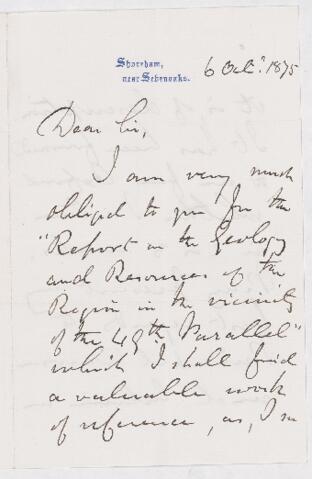 Shoreham,
near Sevenoaks.
6 Oct. 1875
Dear Sir,
I am very much
obliged to you for the
"Report on the Geology
and Resources of the
Region in the vicinity
of the 49th Parallel"
which I shall find
a valuable work
of reference, as, I